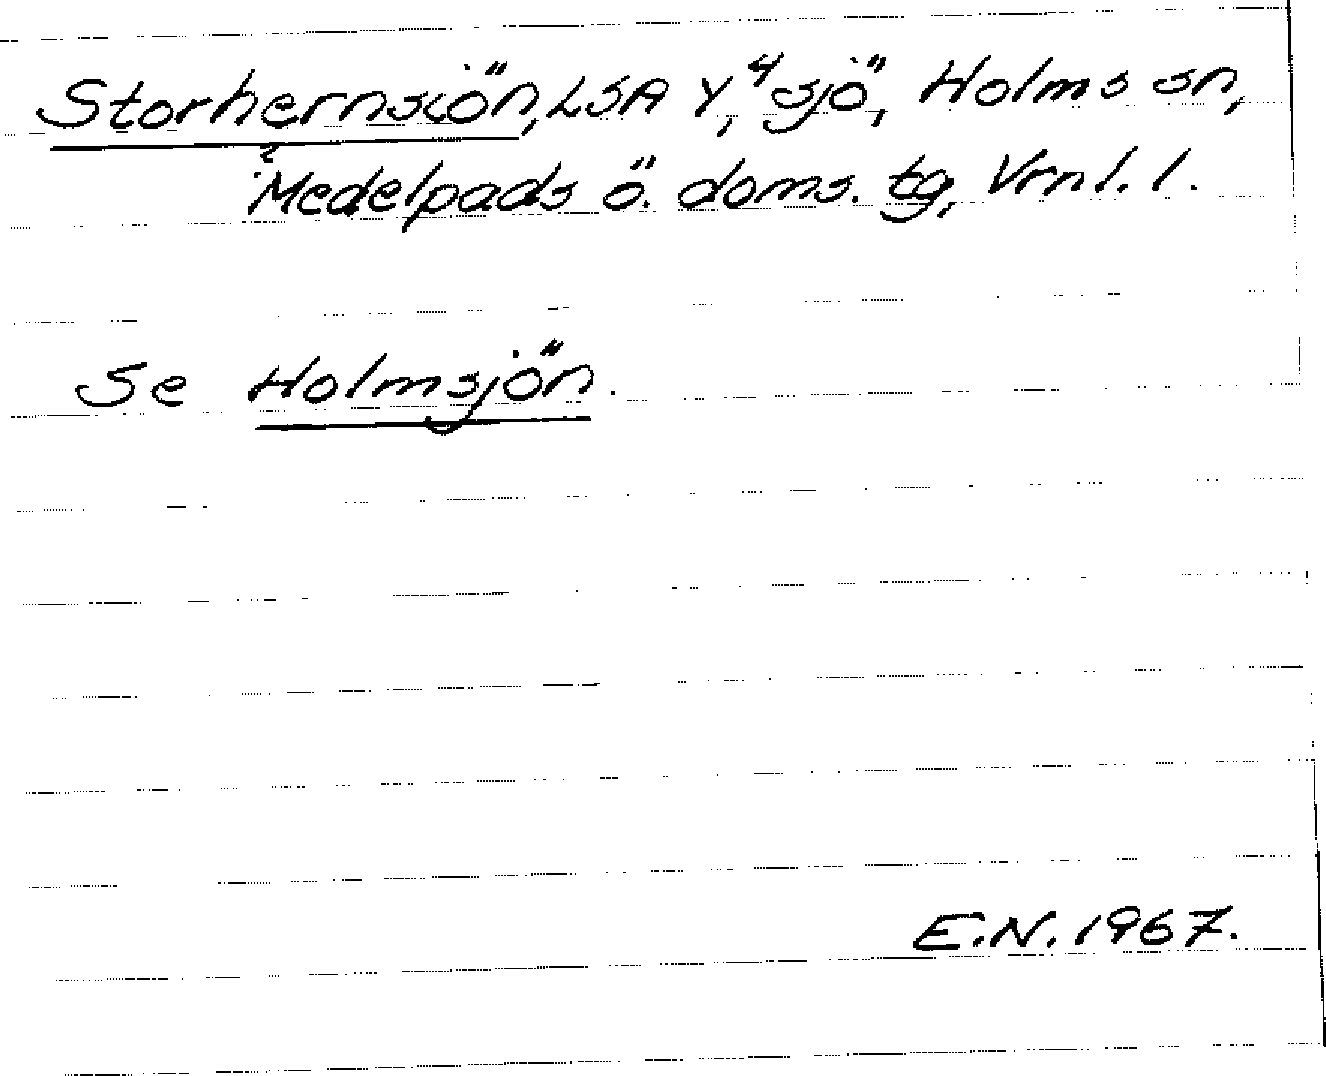 Storhernsiön, LSA Y,⁴ sjö, Holms sn,
Medelpads ö. doms. tg, Vrnl. l.
Se Holmsjön.
E.N. 1967.